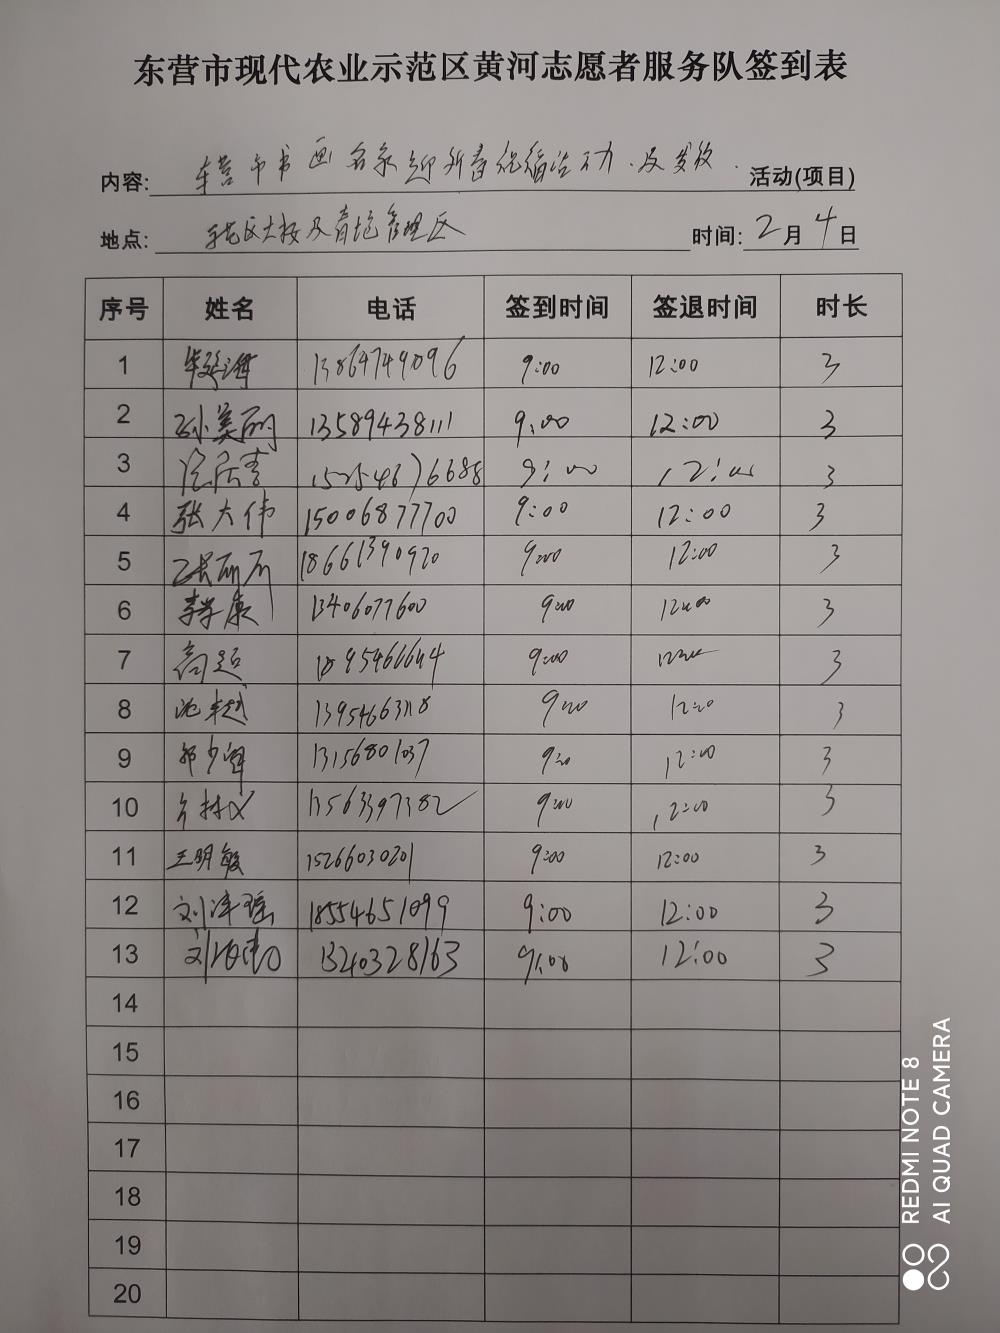 东营市现代农业示范区黄河志愿者服务队签到表
内容: 东营市书画名家迎新春祝福活动.及发放. 活动(项目)
地点: 管理区 时间: 2月4日
序号 姓名 电话 签到时间 签退时间 时长
1 13864749096 9:00 12:00 3
2 孙美丽 13589438111 9:00 12:00 3
3 9:00 12:00 3
4 张大伟 15006877700 9:00 12:00 3
5 18661390920 9:00 12:00 3
6 李学康 13406077600 9:00 12:00 3
7 高超 9:00 3
8 9:00 12:00 3
9 郭少军 13156801037 9:00 12:00 3
10 13563397382 9:00 12:00 3
11 王明敏 15266030201 9:00 12:00 3
12 刘泽瑶 18554651099 9:00 12:00 3
13 13240328163 9:00 12:00 3
14
15
16
17
18
19
20
REDMI NOTE 8
AI QUAD CAMERA